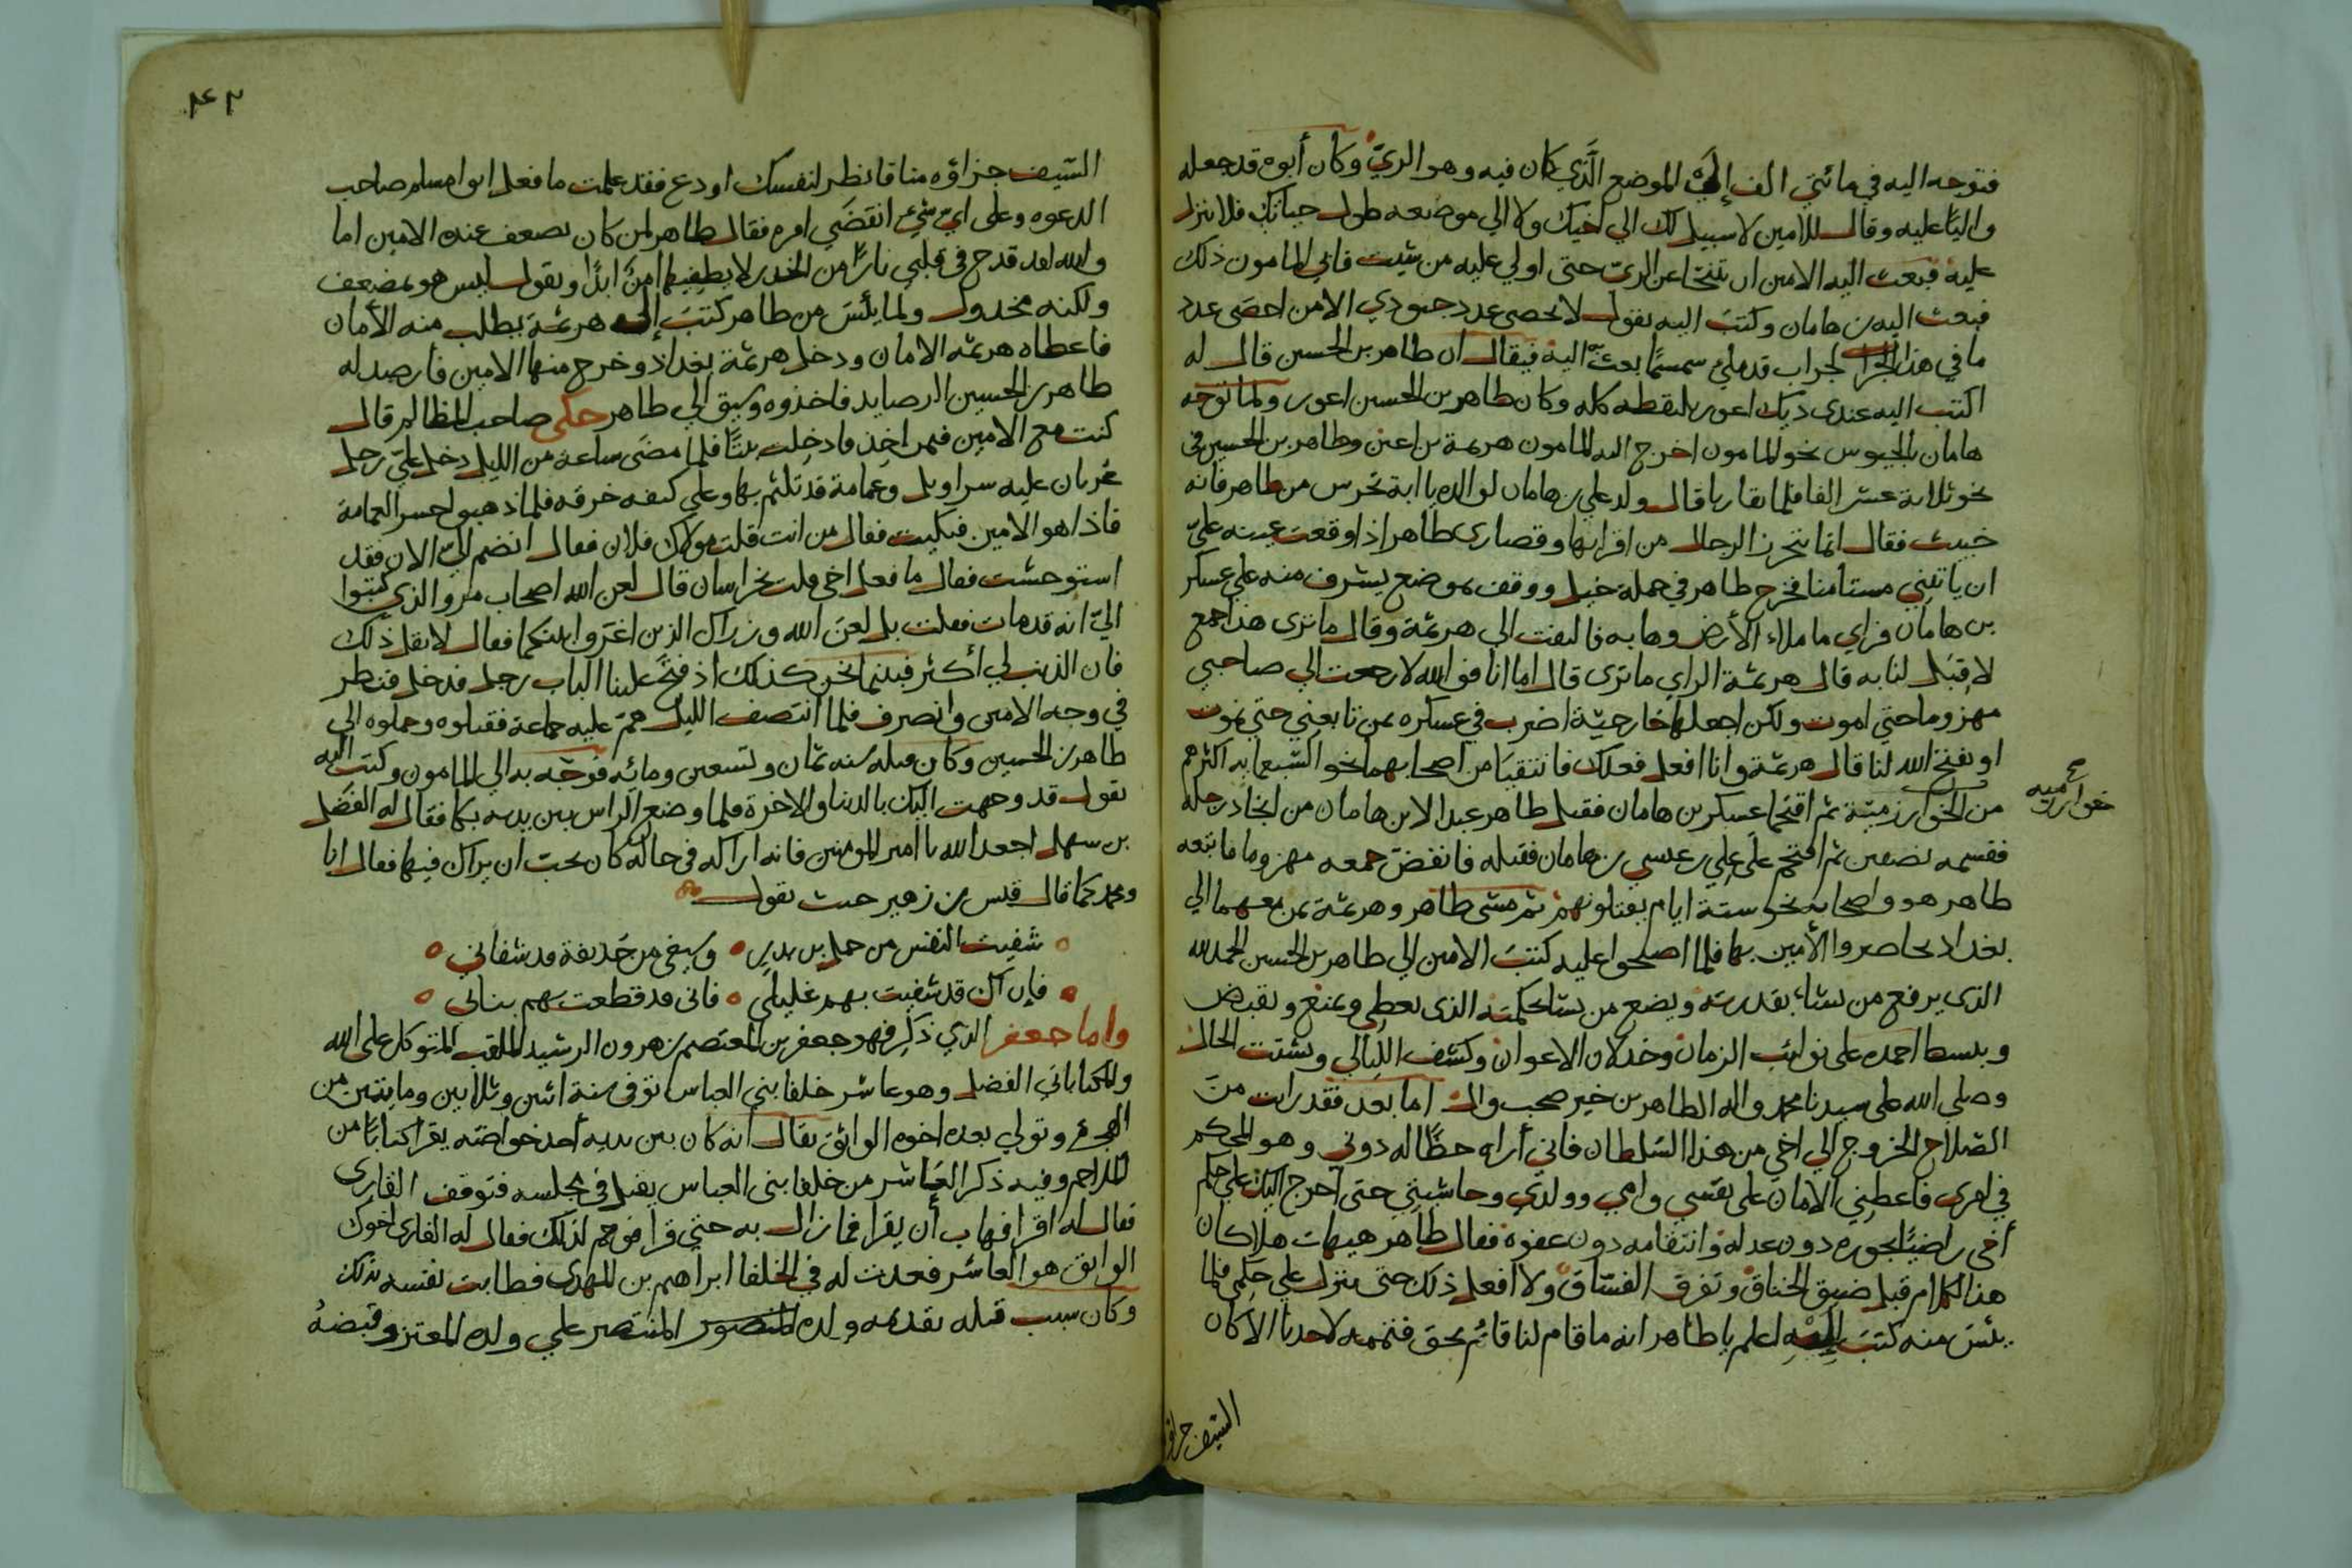 فتوجه اليه في مائتي الف إلى الموضع الَّذي كان فيه وهو الريّ وكان أبوه قد جعله
واليًا عليه وقال للامين لا سبيل لك الي اخيك ولا الي موضعه طول حياتك فلا ينزل
عليه فبعث اليه الامين ان تتنحّا عن الريّ حتى اولي عليه من شيت فابي المامون ذلك
فبعث اليه بن هامان وكتب اليه يقول لا يحصى عدد جنودي الا من احصَى عدد
ما في هذا الجراب لجراب قد ملئ سمسمًا بعث اليه فيقال ان طاهر بن الحسين قال له
اكتب اليه عندي ديك اعور يلتقطه كله وكان طاهر بن الحسين اعور ولما توجه
هامان بالجيوس نحو المامون اخرج اليه المامون هرثمة بن اعين وطاهر بن الحسين في
نحو ثلاثة عشر الفا فلما تقاربا قال ولد علي بن هامان لوالده يا ابة تحرس من طاهر فانه
خبيث فقال انما يتحرز الرجال من اقرانها وقصاري طاهر اذا وقعت عينه عليّ
ان ياتيني مستأمنا فخرج طاهر في جملة خيل ووقف بموضع يشرف منه علي عسكر
بن هامان فراي ما ملاء الأرض وهابه فالتفت الي هرثمة وقال ما ترى هذا جمع
لا قِبَل لنا به قال هرثمة الراي ما ترى قال اما انا فو الله لا رجعت الي صاحبي
مهزوما حتي اموت ولكن اجعلها خارجيّة اضرب في عسكره بمن تابعني حتي نموت
او يفتح الله لنا قال هرثمة وانا افعل فعلك فانتقيَا من اصحابهما نحو السّبعمايه اكثرهم
من الخوارزميّة ثم اقتحما عسكر بن هامان فقتل طاهر عبد الابن هامان من انجاد رجله
خوارزميه
فقسمه نصفين ثم اقتحم على علي بن عيسي بن هامان فقتله فانفضّ جمعه مهزوما فاتبعه
طاهر هو واصحابه نحو ستة ايام يقتلونهم ثم مشى طاهر وهرثمة بمن معهما الي
بغداد يحاصروا الأمين بها فلما اصلحوا عليه كتبَ الامين الي طاهر بن الحسين الحمد لله
الذي يرفع من يشاء بقدرته ويضع من يشا بحكمته الذي يعطي ويمنع ويقبض
ويبسط احمده على نوائب الزمان وخذلان الاعوان وكشف الليالي وتشتت الحال
وصلي الله على سيدنا محمد واله الطاهرين خير صحب وال اما بعد فقد رايت منَ
الصّلاح الخروج الي اخي من هذا السّلطان فاني أراه حظًّا له دوني وهو المحكم
في امري فاعطِني الامان على نفسي وامي وولدي وحاشيتي حتى اخرج اليك علي حكم
أخي راضيًا بجوره دون عدله وانتقامه دون عفوه فقال طاهر هيهات هلا كان
هذا الكلام قبل ضيق الخناق وتفرق الفسّاق ولا افعل ذلك حتى ينزل علي حكمي فلما
يئسَ منه كتبَ إليه اعلم يا طاهر انه ما قام لنا قائم بحق فتممه لاحدنا الا كان
السّيف جزاؤ
٤٢
السّيف جزاؤه منا فانظر لنفسك او دع فقد علمت ما فعل ابو مسلم صاحب
الدعوه وعلى ايّ شيء انقضَي امره فقال طاهر لمن كان يضعف عنده الامين اما
والله لقد قدح في قلبي نارًا من الحذر لا يطفيها امنٌ ابدًا ويقول ليس هو بمضعف
ولكنه مخذول ولما يئسَ من طاهر كتبَ إلى هرثمة يطلب منه الأمان
فاعطاه هرثمه الامان ودخل هرثمة بغداذ وخرج منها الامين فأرصد له
طاهر بن الحسين الرصايد فاخذوه وسيق الي طاهر حكى صاحب المظالم قال
كنت مع الامين فيمن اخِذ فادخِلت بيتًا فلما مضَى ساعة من الليل دخل عليّ رجل
عُريان عليه سراويل وعمامة قد تلثّم بها وعلي كتفه خرقه فلما ذهبوا حسر العمامة
فاذا هو الامين فبكيت فقال من انت قلت مولاك فلان فقال انضم اليّ الان فقد
استوحشت فقال ما فعل اخي قلت بخراسان قال لعن الله اصحاب مرو الذي كتبوا
اليّ انه قد مات فقلت بل لعنَ الله وزراك الذين اغروا بينكما فقال لا تقل ذلك
فان الذنب لي أكثر فبينما نحن كذلك اذ فتحَ علينا الباب رجل فدخل فنظر
في وجه الامين وانصرف فلما انتصف الليل هجم عليه جماعة فقتلوه وحملوه الي
طاهر بن الحسين وكان قتله سنه ثمان وتسعين ومائه فوجّه به الي المامون وكتب اليه
يقول قد وجهت اليك بالدنيا والاخرة فلما وضع الراس بين يديه بكا فقال له الفضل
بن سهل احمد الله يا امير المومنين فانه اراكه في حاله كان يحبّ ان يراك فيها فقال انا
ومحمد كما قال قيس بن زهير حيث يقول
شفيت النفس من حمل بن بدرٍ وسيفي من حُذيفة قد شفاني
فإن اك قد شفيت بهم غليلي فاني قد قطعت بهم بناني
واما جعفر الذي ذكِر فهو جعفر بن المعتصم بن هرون الرشيد الملقب المتوكل على الله
والمكنا باني الفضل وهو عاشر خلفا بني العباس توفي سنة اثنين وثلاثين ومايتين من
الهجرة وتولي بعده اخوه الواثق يقال انه كان بين يديه أحد خواصّه يقرا كتابًا من
الملاحم وفيه ذكر العَاشر من خلفا بني العباس يقتل في مجلسه فتوقف القارى
فقال له اقرا فهاب أن يقرا فما زال به حتي قرا فوجم لذلك فقال له القارى اخوك
الواثق هو العاشر فعدت له في الخلفا ابراهيم بن المهدي فطابت نفسه بذلك
وكان سبب قتله تقديمه ولده المنصور المنتصر علي ولده المعتز وقبضهُ